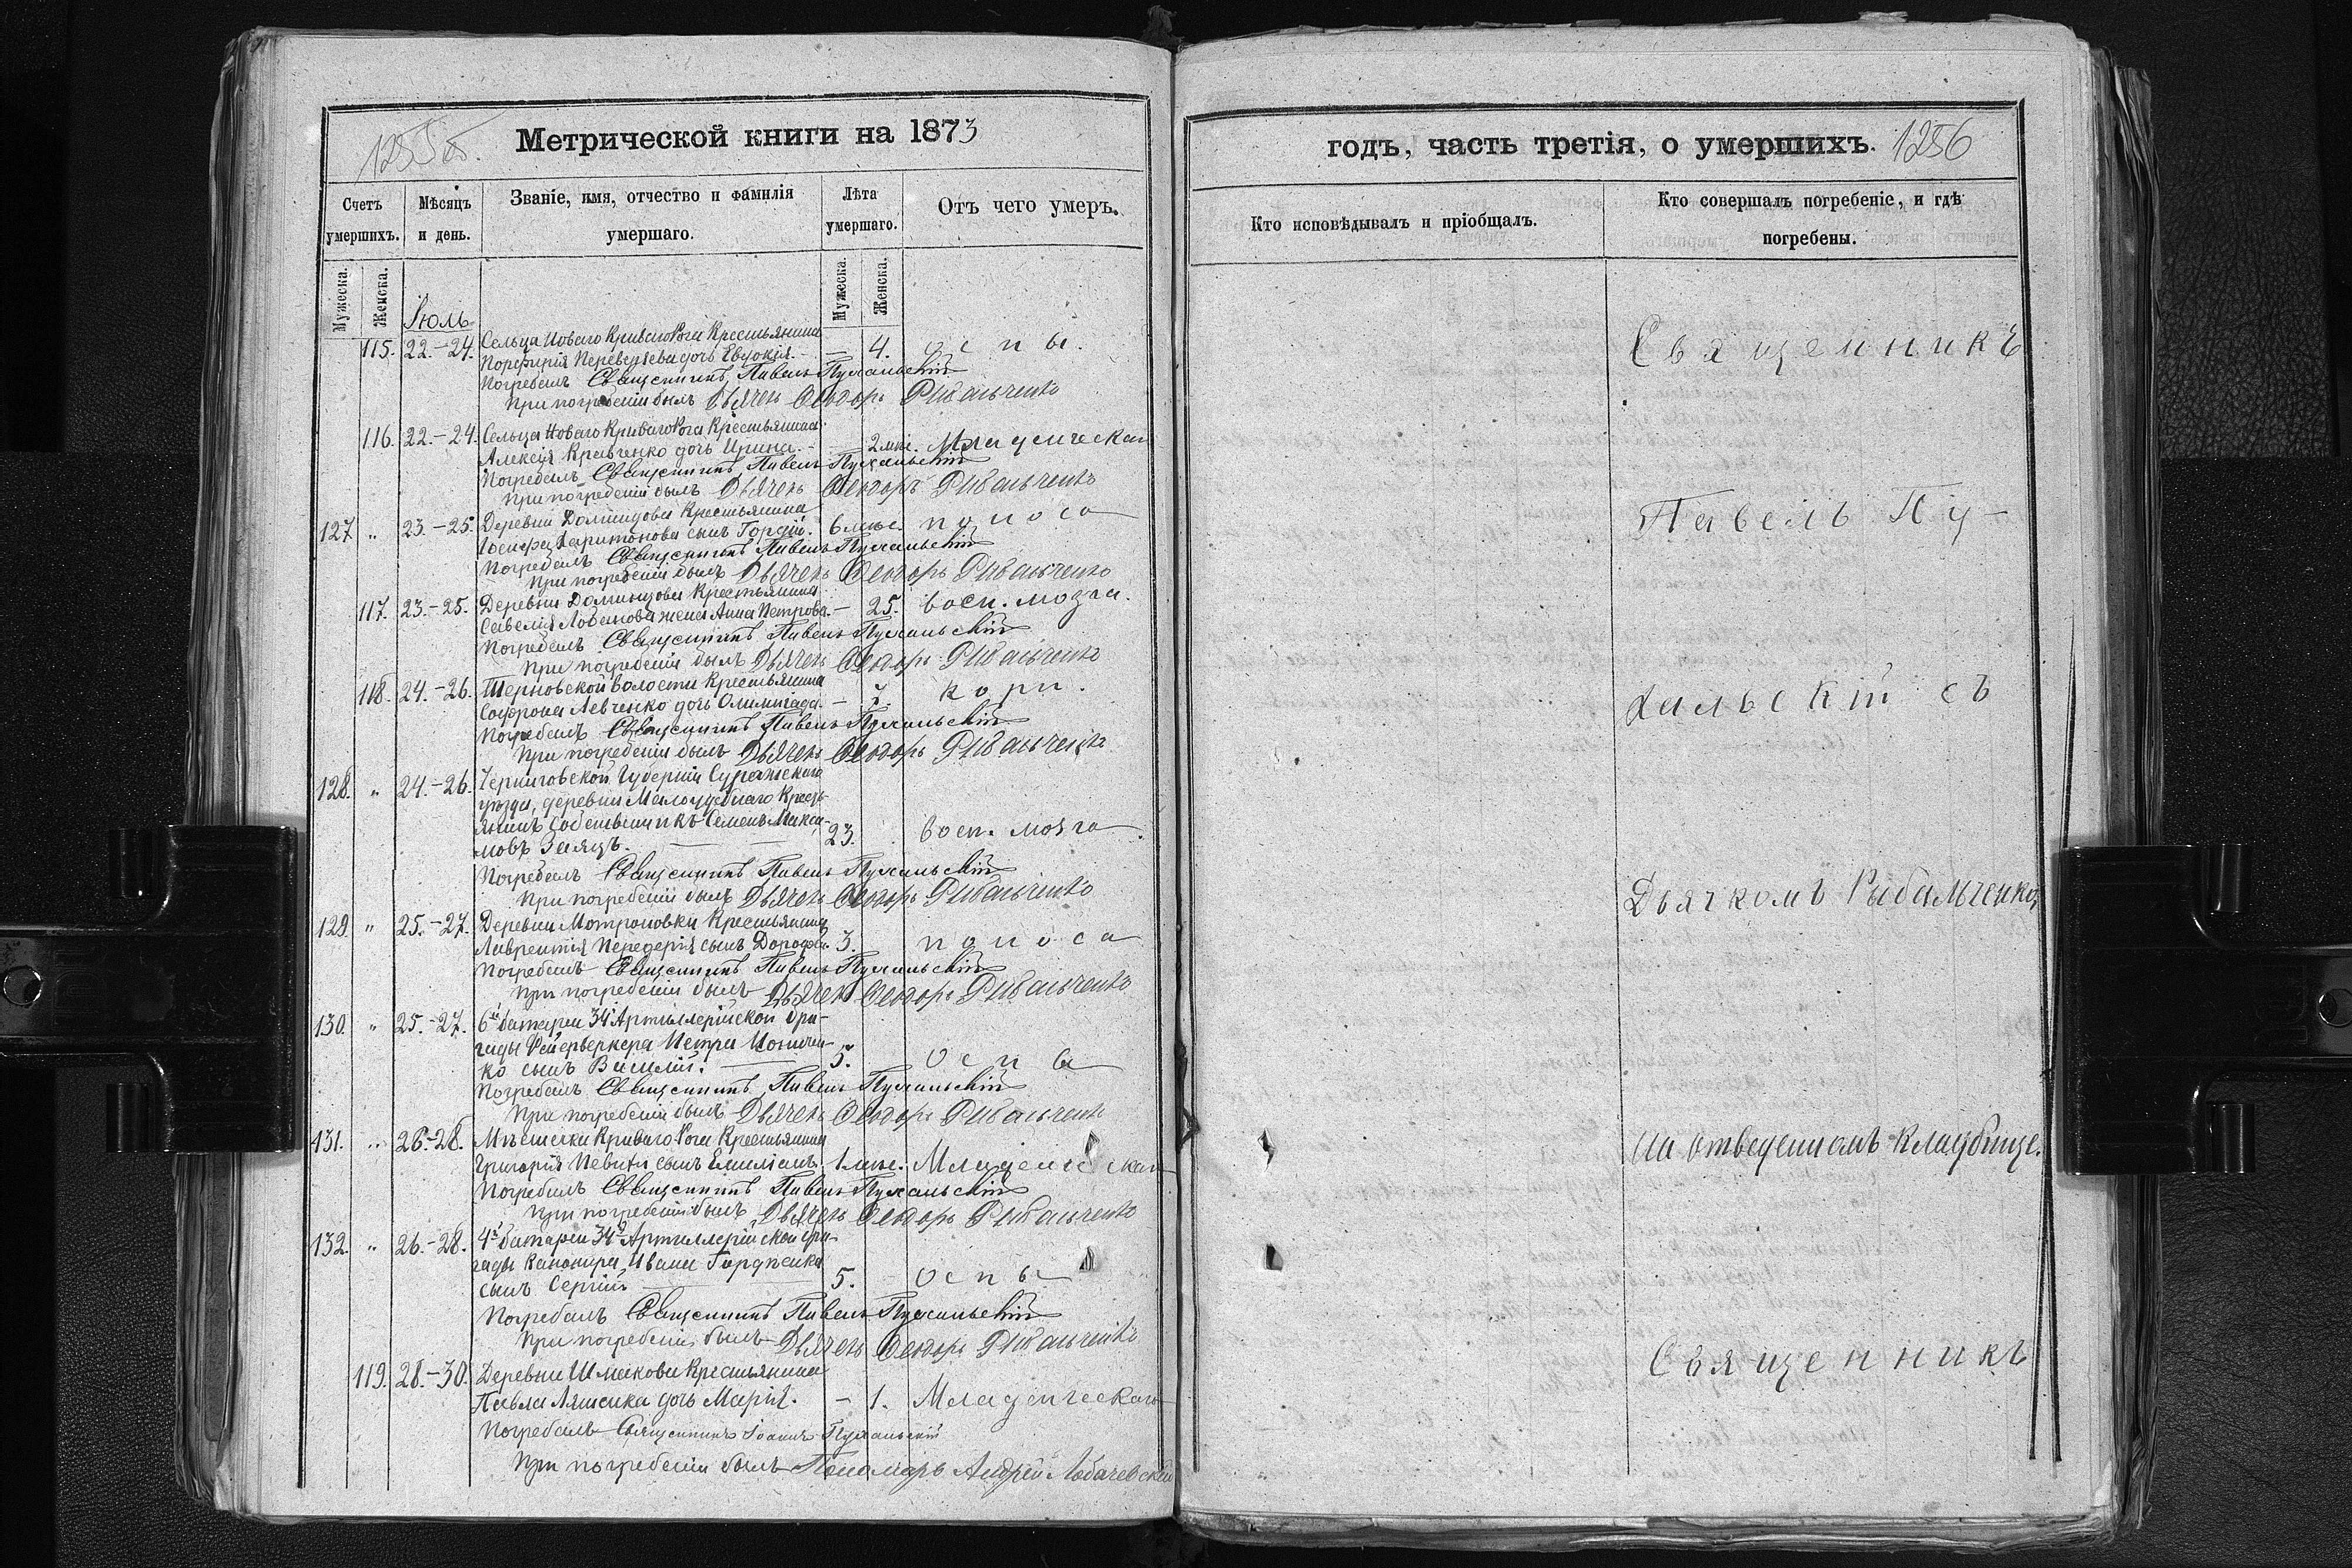 1255
Метрической книги на 1873
Счетъ умершихъ.
Мѣсяцъ и день.
Званіе, имя, отчество и фамилія умершаго.
Лѣта умершаго.
Отъ чего умеръ.
Мужеска. Женска.
Мужеска. Женска.
Іюль
Сельца Новаго Криваго Рога Крестьянина
115. 22.–24. Порфирія дочь Евдокія. – 4. оспы.
Погребалъ Священникъ Павелъ Пухальскій
При погребеніи былъ Дьячекъ Ѳеодоръ Рибальченко
116. 22.–24. Сельца Новаго Криваго Рога Крестьянина
Алексія Кравченко дочь Ирина. – 2 мѣс. Младенческая
Погребалъ Священникъ Павелъ Пухальскій
При погребеніи былъ Дьячекъ Ѳеодоръ Рибальченко
127 „ 23.–25. Деревни Долгинцовки Крестьянина
Іосифа Харитонова сынъ Гордій. 6 мѣс. поноса
Погребалъ Священникъ Павелъ Пухальскій
При погребеніи былъ Дьячекъ Ѳеодоръ Рибальченко
117. 23.–25. Деревни Крестьянина
Савелія Лобанова жена Анна Петрова. – 25. восп. мозга.
Погребалъ Священникъ Павелъ Пухальскій
При погребеніи былъ Дьячекъ Ѳеодоръ Рибальченко
118. 24.–26. Терновской волости Крестьянина
Софрона Левченко дочь – кори.
Погребалъ Священникъ Павелъ Пухальскій
При погребеніи былъ Дьячекъ Ѳеодоръ Рибальченко
128. „ 24.–26. Черниговской Губерніи Суражскаго
уѣзда, деревни Кресть-
янинъ Собственникъ Семенъ Макси-
мовъ Заяцъ. 23. восп. мозга.
Погребалъ Священникъ Павелъ Пухальскій
При погребеніи былъ Дьячекъ Ѳеодоръ Рибальченко
129. „ 25.–27. Деревни Мотроновки Крестьянина
Лаврентія Передерія сынъ Дорофей. 3. поноса
Погребалъ Священникъ Павелъ Пухальскій
При погребеніи былъ Дьячекъ Ѳеодоръ Рибальченко
130. „ 25.–27. 6й батареи 34й Артиллерійской бри-
гады Фейерверкера Петра
ко сынъ Василій. 5. оспы
Погребалъ Священникъ Павелъ Пухальскій
При погребеніи былъ Дьячекъ Ѳеодоръ Рибальченко
131. „ 26.–28. Мѣстечка Криваго Рога Крестьянина
Григорія сынъ Емиліанъ. 1 мѣс. Младенческая
Погребалъ Священникъ Павелъ Пухальскій
При погребеніи былъ Дьячекъ Ѳеодоръ Рибальченко
132. „ 26.–28. 4й батареи 34й Артиллерійской бри-
гады Канонира Ивана Гордѣенка
сынъ Сергій 5. Оспы
Погребалъ Священникъ Павелъ Пухальскій
При погребеніи былъ Дьячекъ Ѳеодоръ Рибальченко
119. 28.–30. Деревни Шмаковки Крестьянина
Павла Ляшенка дочь Марія. – 1. Младенческая
Погребалъ Священникъ Іоаннъ Пухальскій
При погребеніи былъ Пономарь Андрей Лобачевскій
годъ, часть третія, о умершихъ. 1256
Кто исповѣдывалъ и пріобщалъ.
Кто совершалъ погребеніе, и гдѣ погребены.
Священникъ
Павелъ Пу-
хальскій съ
Дьячкомъ Рыбальченко,
на отведенномъ кладбищѣ.
Священникъ